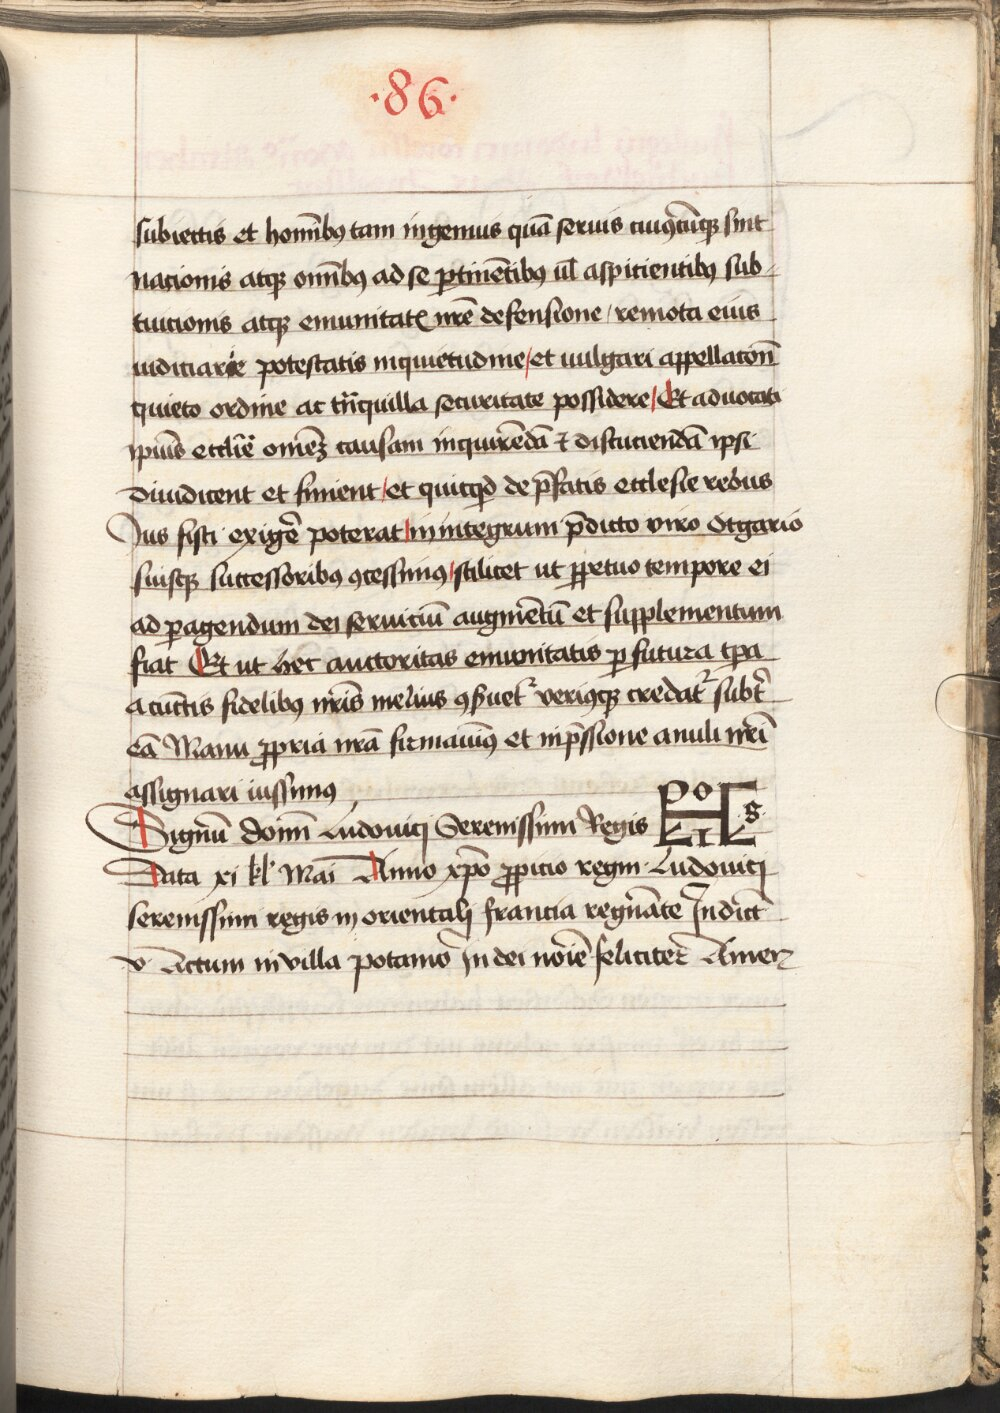 ·86·
subiectis et hominibꝰ tam ingenuis quā seruis cuiꝰcūqꝫ sint
nacionis atqꝫ omībꝰ ad se ꝑtinētibꝰ ul̄ aspicientibꝰ sub
tuicionis atqꝫ emunitatꝭ nr̄e defensione / remota eius
iudiciarie potestatis inquietudine / et uulgari appellacōn̄
quieto ordine ac trn̄quilla securitate possidere / Et aduocati
ipiūs eccliē omēꝫ causam inquirēdā & discuciendā ipsi
Diiudicent et finient / et quicqd̄ de p̄fatis ecclesie rebus
Ius fisci exigē poterat / in integrum p̄dicto viro Otgario
suisqꝫ successoribus ꝯcessimꝰ / scilicet ut ꝑpetuo tempore ei
ad ꝑagendum dei seruiciū augmētū et supplementum
fiat Et ut hec auctoritas emunitatis ꝑ futura tꝑa
a cūctis fidelibꝰ nr̄is melius ꝯßuet᷑ veriꝰqꝫ credat᷑ subt᷑
eā Manu ꝓpria nrā firmauimꝰ et inp̄ssione anuli nrī
assignari iussimꝰ
Signū domī Ludouici Serenissimi Regis
Data xi kl̄ Mai Anno xp̄o ꝓpicio regni Ludouici
serenissimi regis in orientali francia regnāte Indict̄
v Actum in villa potamo In dei noīe feliciter Amen